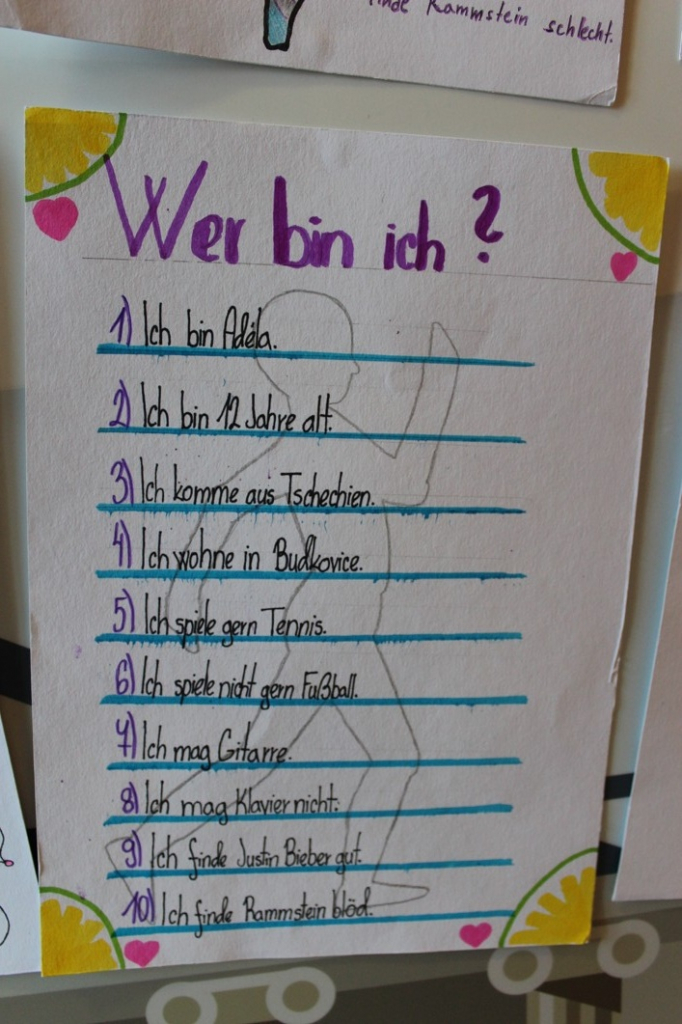 Rammstein schlecht.
Wer bin ich?
1) Ich bin Adéla.
2) Ich bin 12 Jahre alt.
3) Ich komme aus Tschechien.
4) Ich wohne in Budkovice.
5) Ich spiele gern Tennis.
6) Ich spiele nicht gern Fußball.
7) Ich mag Gitarre.
8) Ich mag Klavier nicht.
9) Ich finde Justin Bieber gut.
10) Ich finde Rammstein blöd.